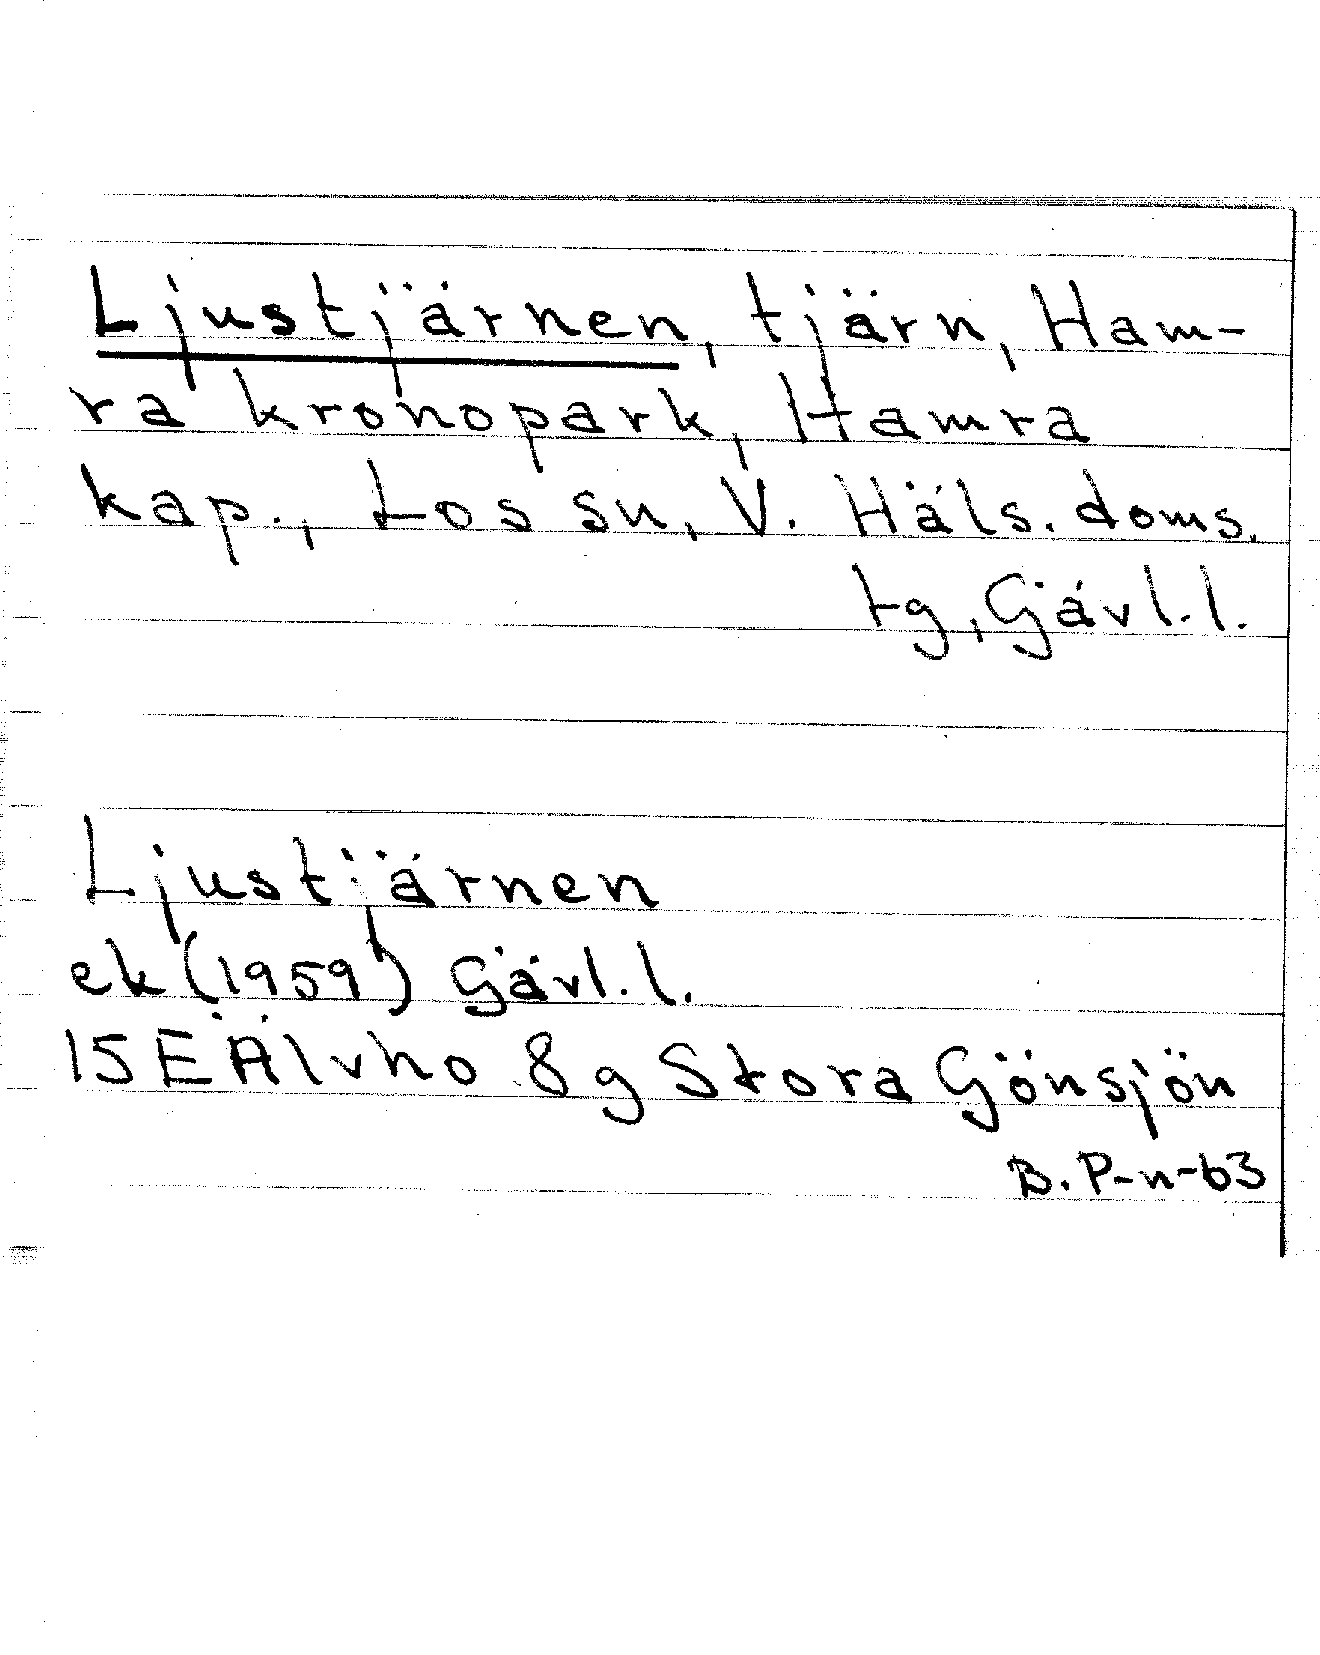 Ljustjärnen, tjärn, Ham-
ra kronopark, Hamra
kap., Los sn, V. Häls. doms.
tg, Gävl. l.
Ljustjärnen
ek (1959) Gävl. l.
15E Älvho 8g Stora Gönsjön
B. P-n-63